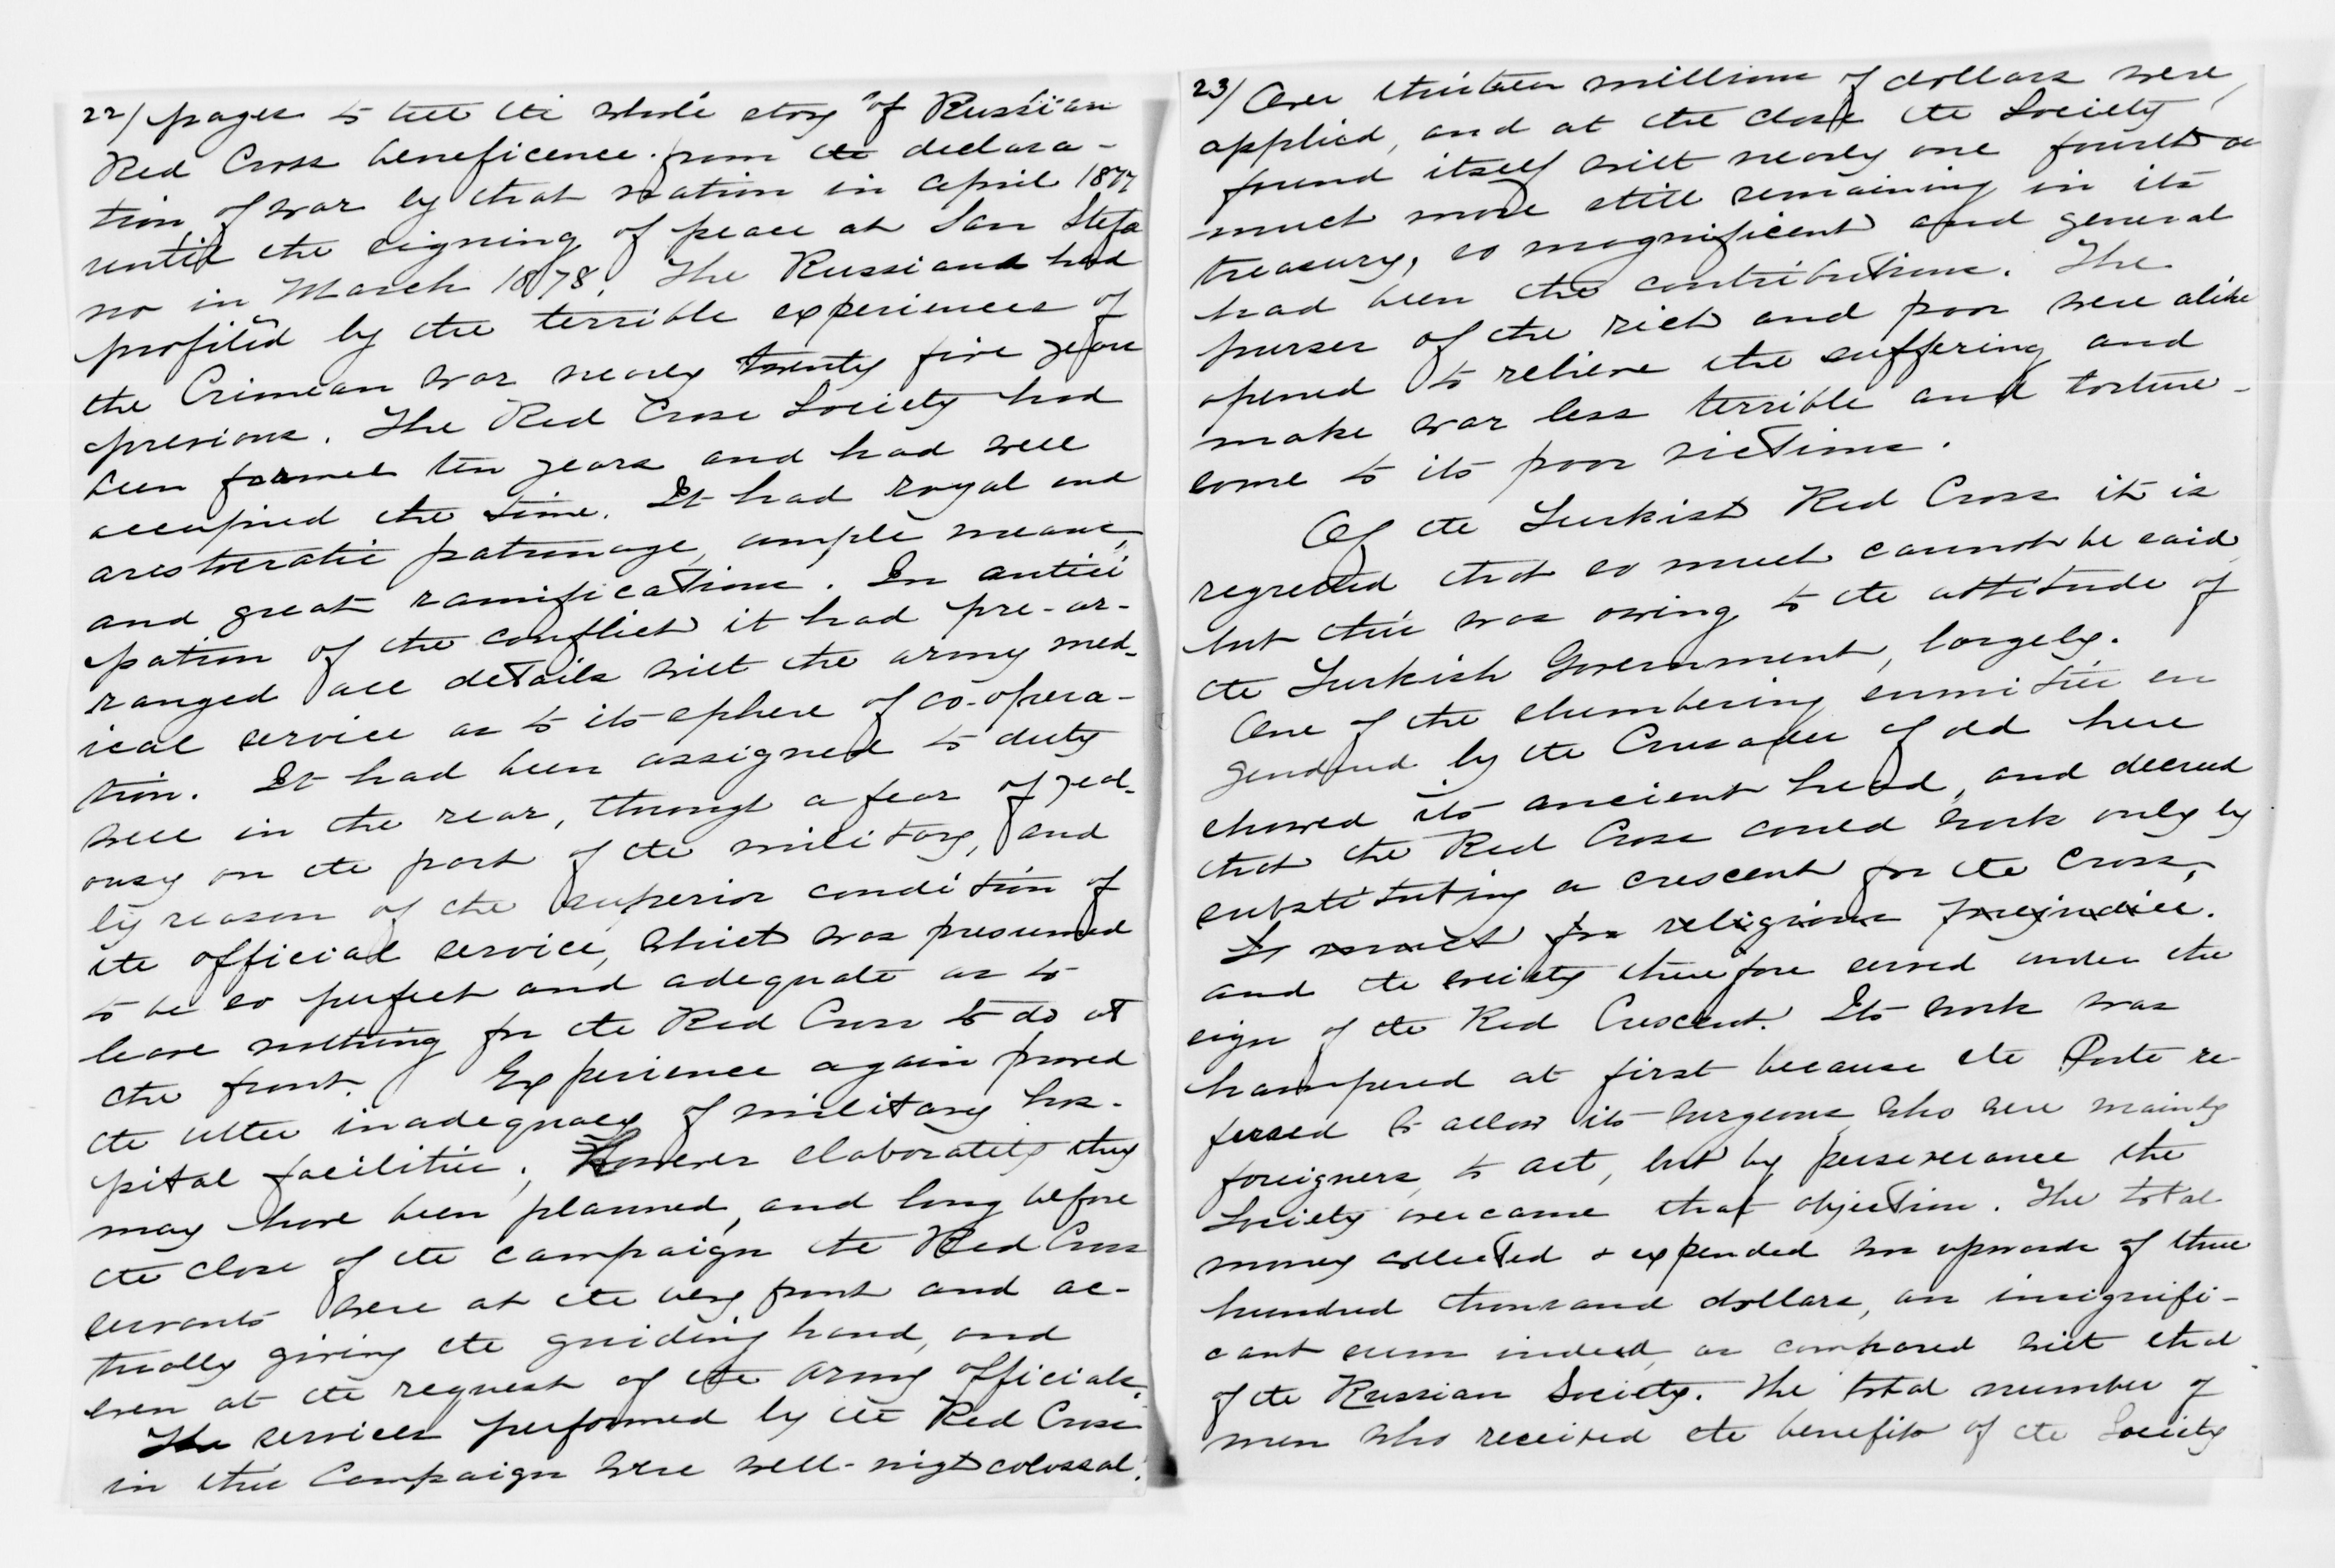 22/ pages to tell the whole story of Russian
Red Cross beneficence from the declara-
tion of war by that nation in April 1877
until the signing of peace at San Stefa
no in March 1878. The Russians had
profited by the terrible experiences of
the Crimean war nearly twenty five years
previous. The Red Cross Society had
been formed ten years and had well
occupied the time. It had royal and
arestocratic patronage, ample means,
and great ramifications. In antici
pation of the conflict it had pre-ar-
ranged all details with the army med-
ical service as to its sphere of co-opera-
tion. It had been assigned to duty
well in the rear, through a fear of jeal-
ousy on the part of the military, and
by reason of the superior condition of
its official service, which was presumed
to be so perfect and adequate as to
leave nothing for the Red Cross to do at
the front. Experience again proved
the utter inadequacy of military hos-
pital facilities, However elaborately they
may have been planned, and long before
the close of the campaign the Red Cross
servants were at the very front and ac-
tually giving the guiding hand, and
even at the request of the army officials.
The services performed by the Red Cross
in this Campaign were well-nigh colossal.
23/ Over thirteen millions of dollars were
applied, and at the close the Society
found itself with nearly one fourth as
much more still remaining in its
treasury, so magnificent and general
had been the contributions. The
purses of the rich and poor were alike
opened to relieve the suffering and
make war less terrible and torture-
some to its poor victims.
Of the Turkish Red Cross it is
regretted that so much cannot be said,
but this was owing to the attitude of
the Turkish Government, largely.
One of the slumbering enmities en
gendered by the Crusades of old here
showed its ancient head, and decreed
that the Red Cross could work only by
substituting a crescent for the cross,
So much for religious prejudice.
and the society therefore served under the
sign of the Red Crescent. Its work was
hampered at first because the Porte re-
fused to allow its surgeons, who were mainly
foreigners, to act, but by perseverance the
Society overcame that objection. The total
money collected & expended was upwards of three
hundred thousand dollars, an insignifi-
cant sum indeed, as compared with that
of the Russian Society. The total number of
men who received the benefits of the Society